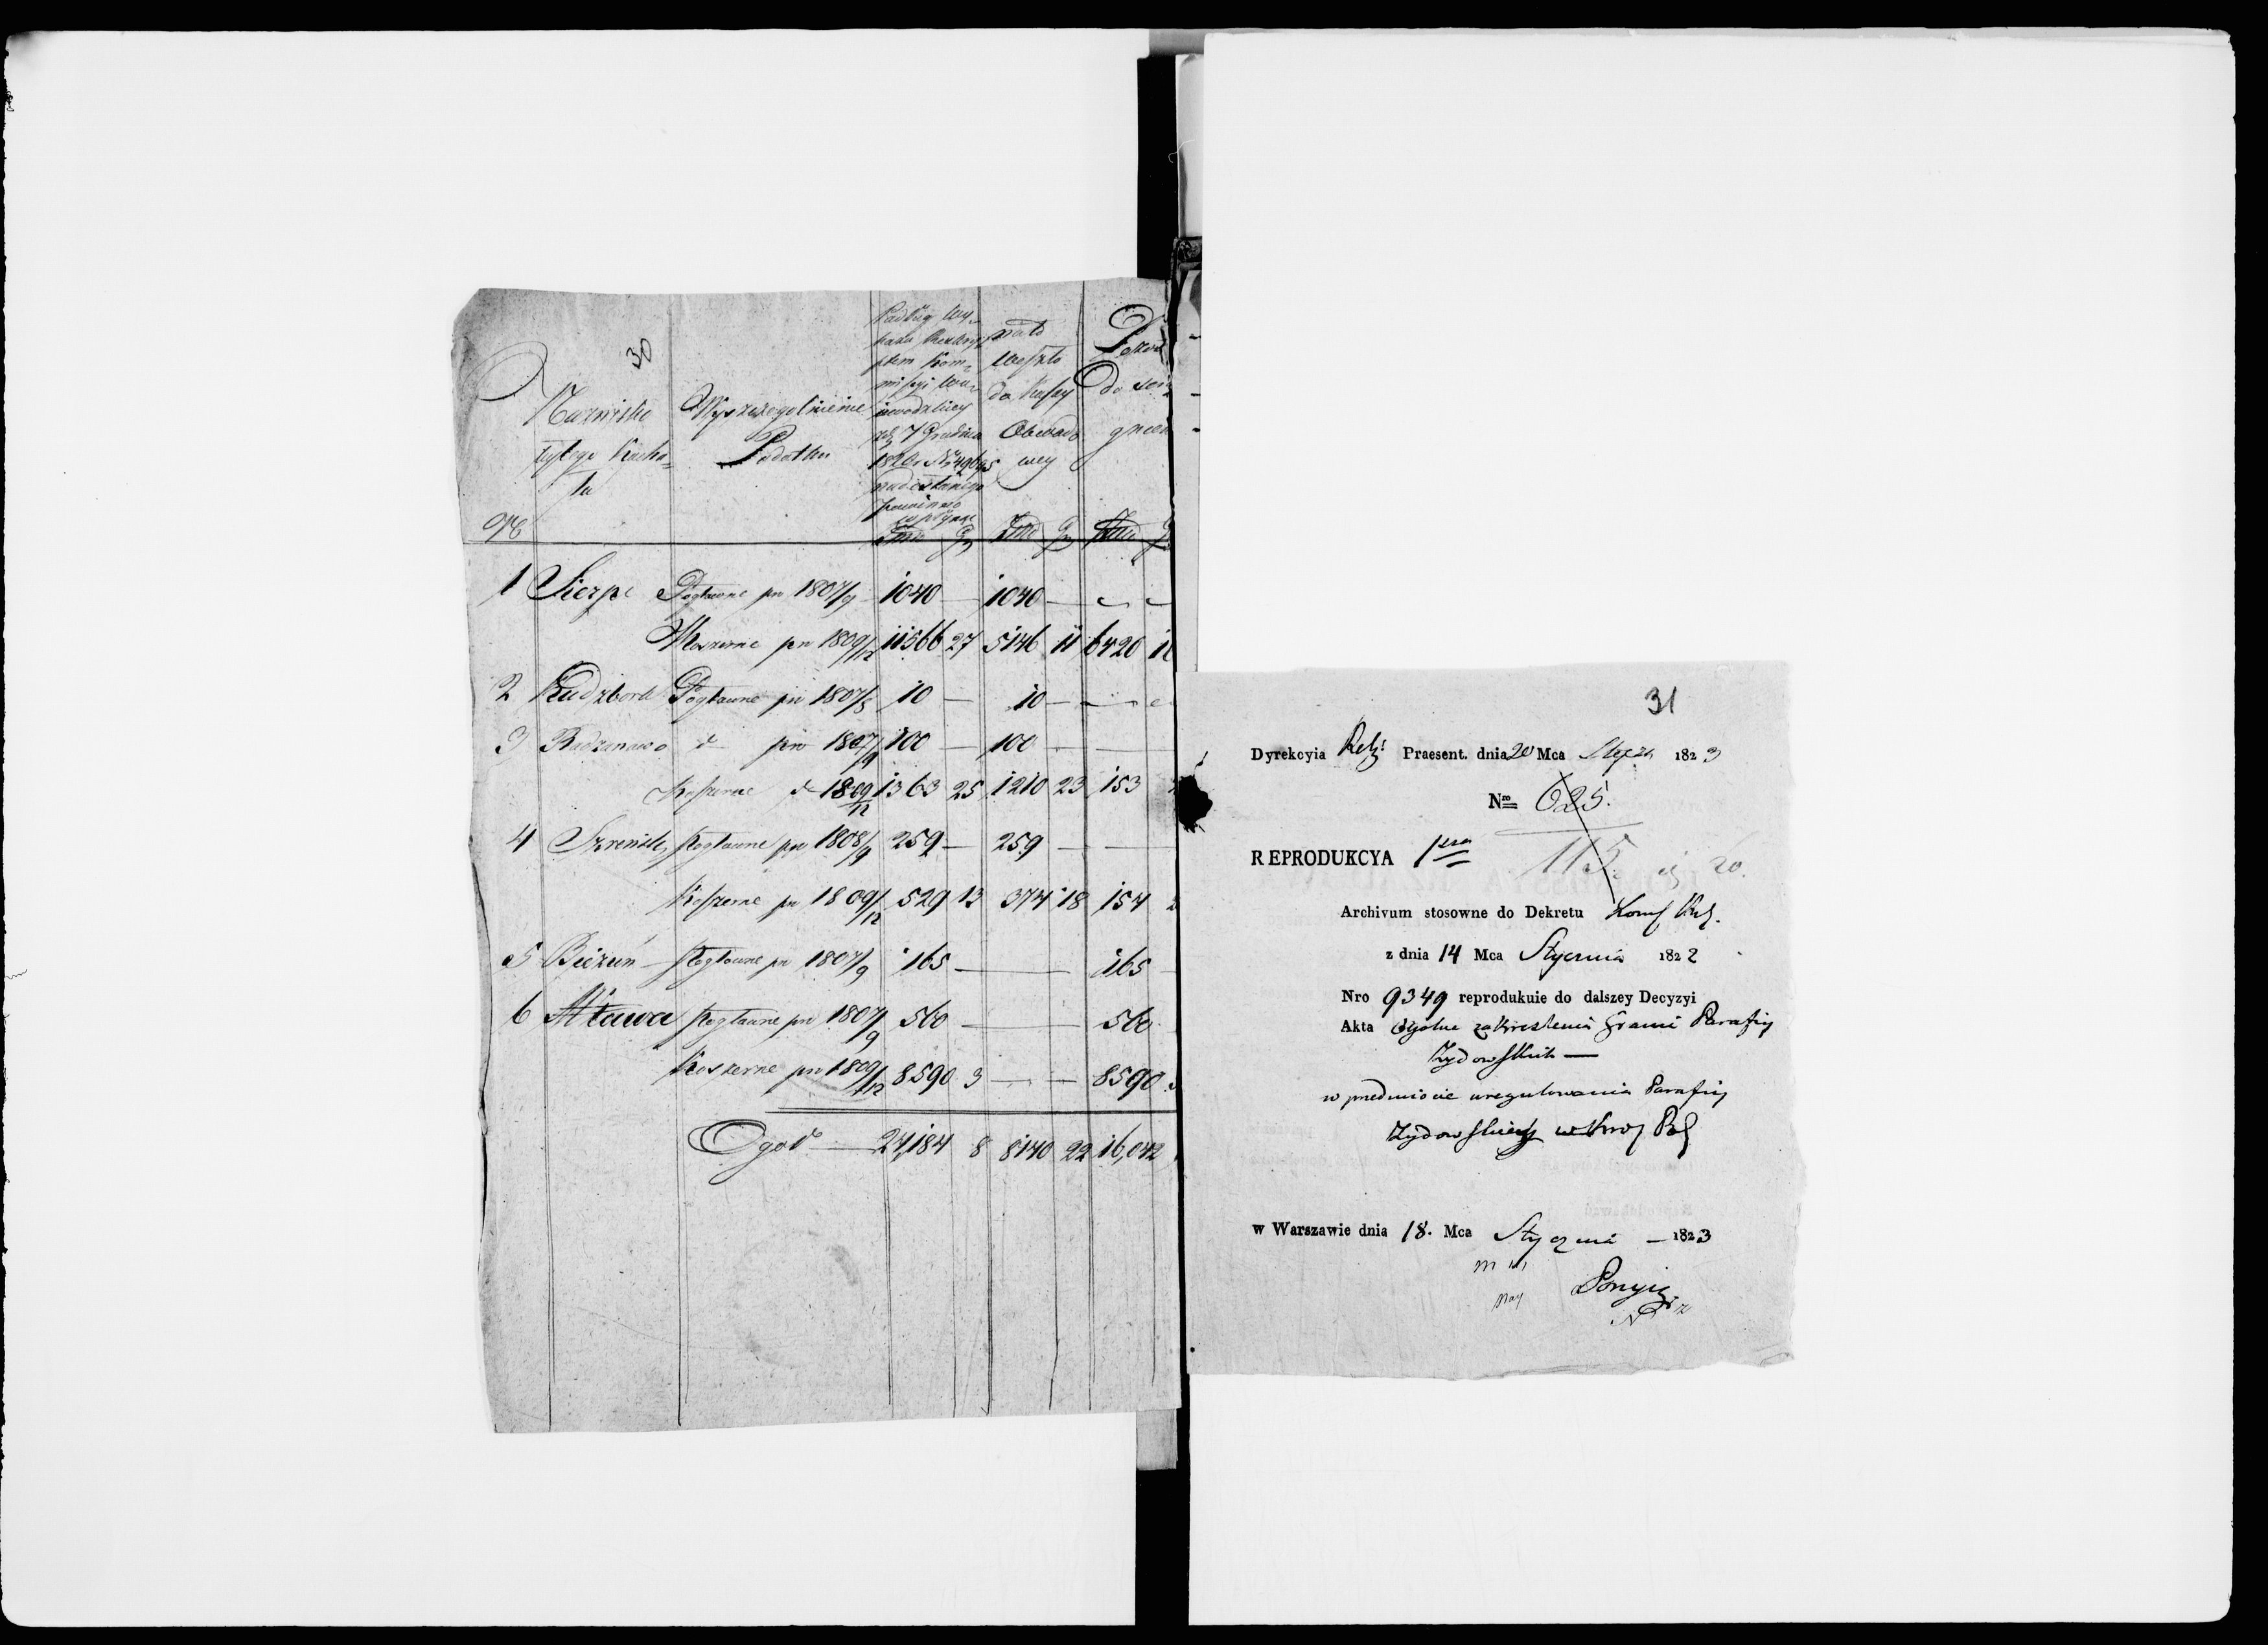 30
Nazwisko
byłego Kaha-
łu
Wyszczegolnienie
Podatku
Podług Wy-
kazu Reskryp-
ptem Kom-
missyi Wo-
iewodzkiey
z d. 7 Grudnia
1820 Nr 49695
nadesłanego
powinno
wpłynąć
na to
weszło
do Kassy
Obwodo
wey
do
Nro
1 Sierpc Pogłowne pro 1807/9 1040 — 1040 —
Koszerne pro 1809/12 11566 27 5146 11 6420
2 Kudzborek Pogłowne pro 1807/8 10 — 10 —
3 Radzanowo d pro 1807/9 100 — 100 —
Koszerne d 1809/12 1363 25 1210 23 153
4 Szreńsk Pogłowne pro 1808/9 259 — 259 —
Koszerne pro 1809/12 529 13 374 18 154
5 Bieżuń — Pogłowne pro 1807/9 165 — 165
6 Mława Pogłowne pro 1807/9 560 — 560
Koszerne pro 1809/12 8590 3 — 8590
Ogół — 24,184 8 8140 22 16,042
31
Dyrekcyia Praesent. dnia 20 Mca 1823
Nro 625.
REPRODUKCYA 1sza
115. 20.
Archivum stosowne do Dekretu
z dnia 14 Mca Stycznia 1822
Nro 9349 reprodukuie do dalszey Decyzyi
Akta ogolne zakreslenia Granic Parafiy
Zydowskich —
w przedmiocie uregulowania Parafiy
Zydowskich
w Warszawie dnia 18. Mca Stycznia — 1823